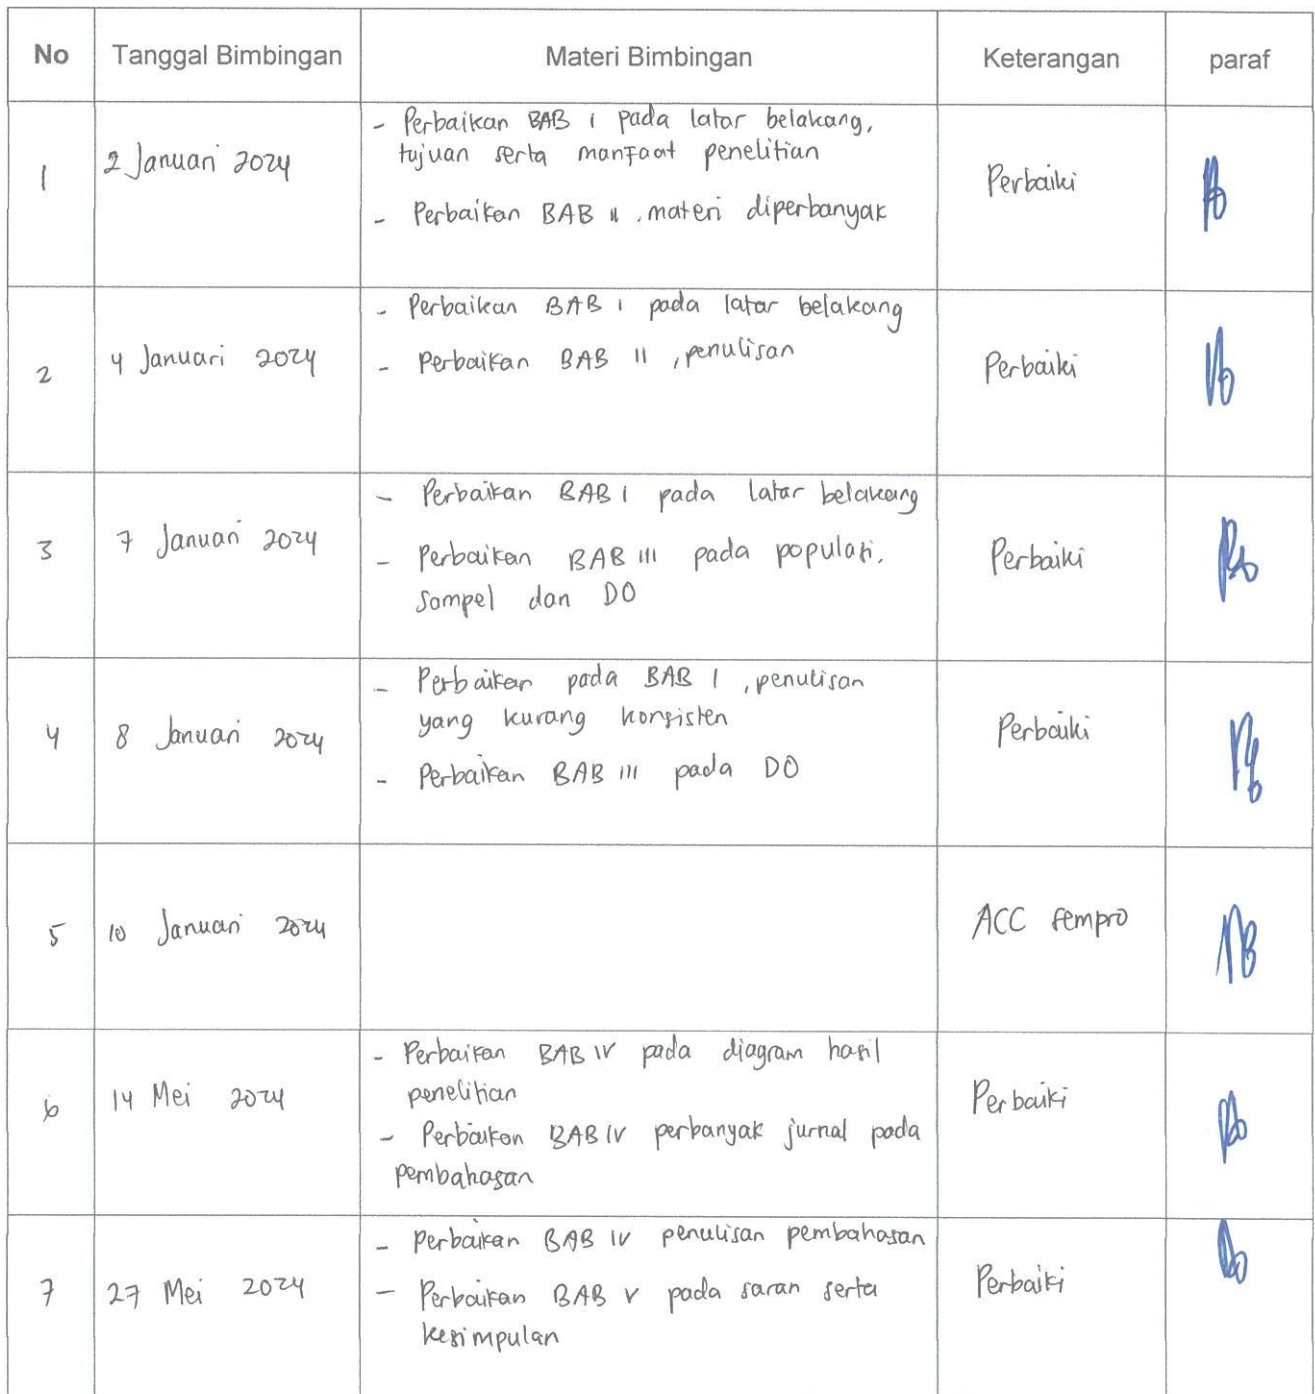 No Tanggal Bimbingan Materi Bimbingan Keterangan paraf
1 2 Januari 2024 Perbaiki
- Perbaikan BAB I pada latar belakang,
tujuan serta manfaat penelitian
- Perbaikan BAB II, materi diperbanyak
2 4 Januari 2024 Perbaiki
- Perbaikan BAB I pada latar belakang
- Perbaikan BAB II, penulisan
3 7 Januari 2024 Perbaiki
- Perbaikan BAB I pada latar belakang
- Perbaikan BAB III pada populasi,
sampel dan DO
4 8 Januari 2024 Perbaiki
- Perbaikan pada BAB I, penulisan
yang kurang konsisten
- Perbaikan BAB III pada DO
5 10 Januari 2024 ACC sempro
6 14 Mei 2024 Perbaiki
- Perbaikan BAB IV pada diagram hasil
penelitian
- Perbaikan BAB IV perbanyak jurnal pada
pembahasan
7 27 Mei 2024 Perbaiki
- Perbaikan BAB IV penulisan pembahasan
- Perbaikan BAB V pada saran serta
kesimpulan